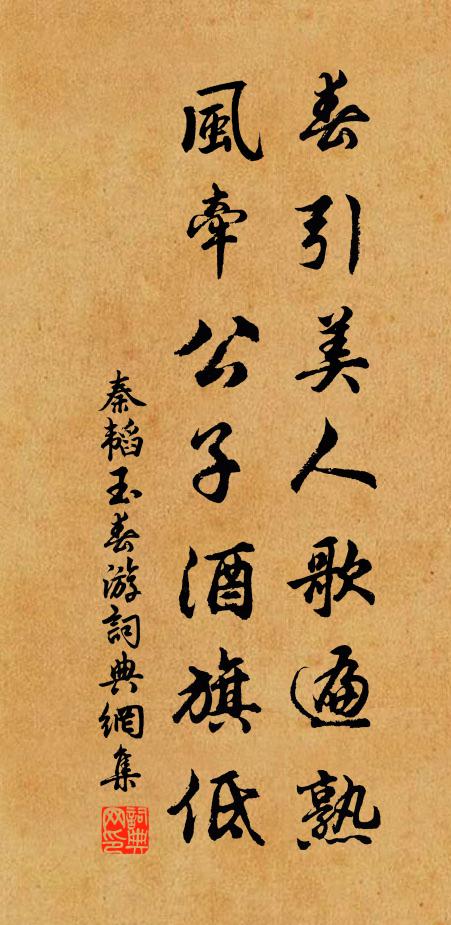 春引美人歌遍熟
風牽公子酒旗低
秦韜玉春游詞典網集
詞典網印